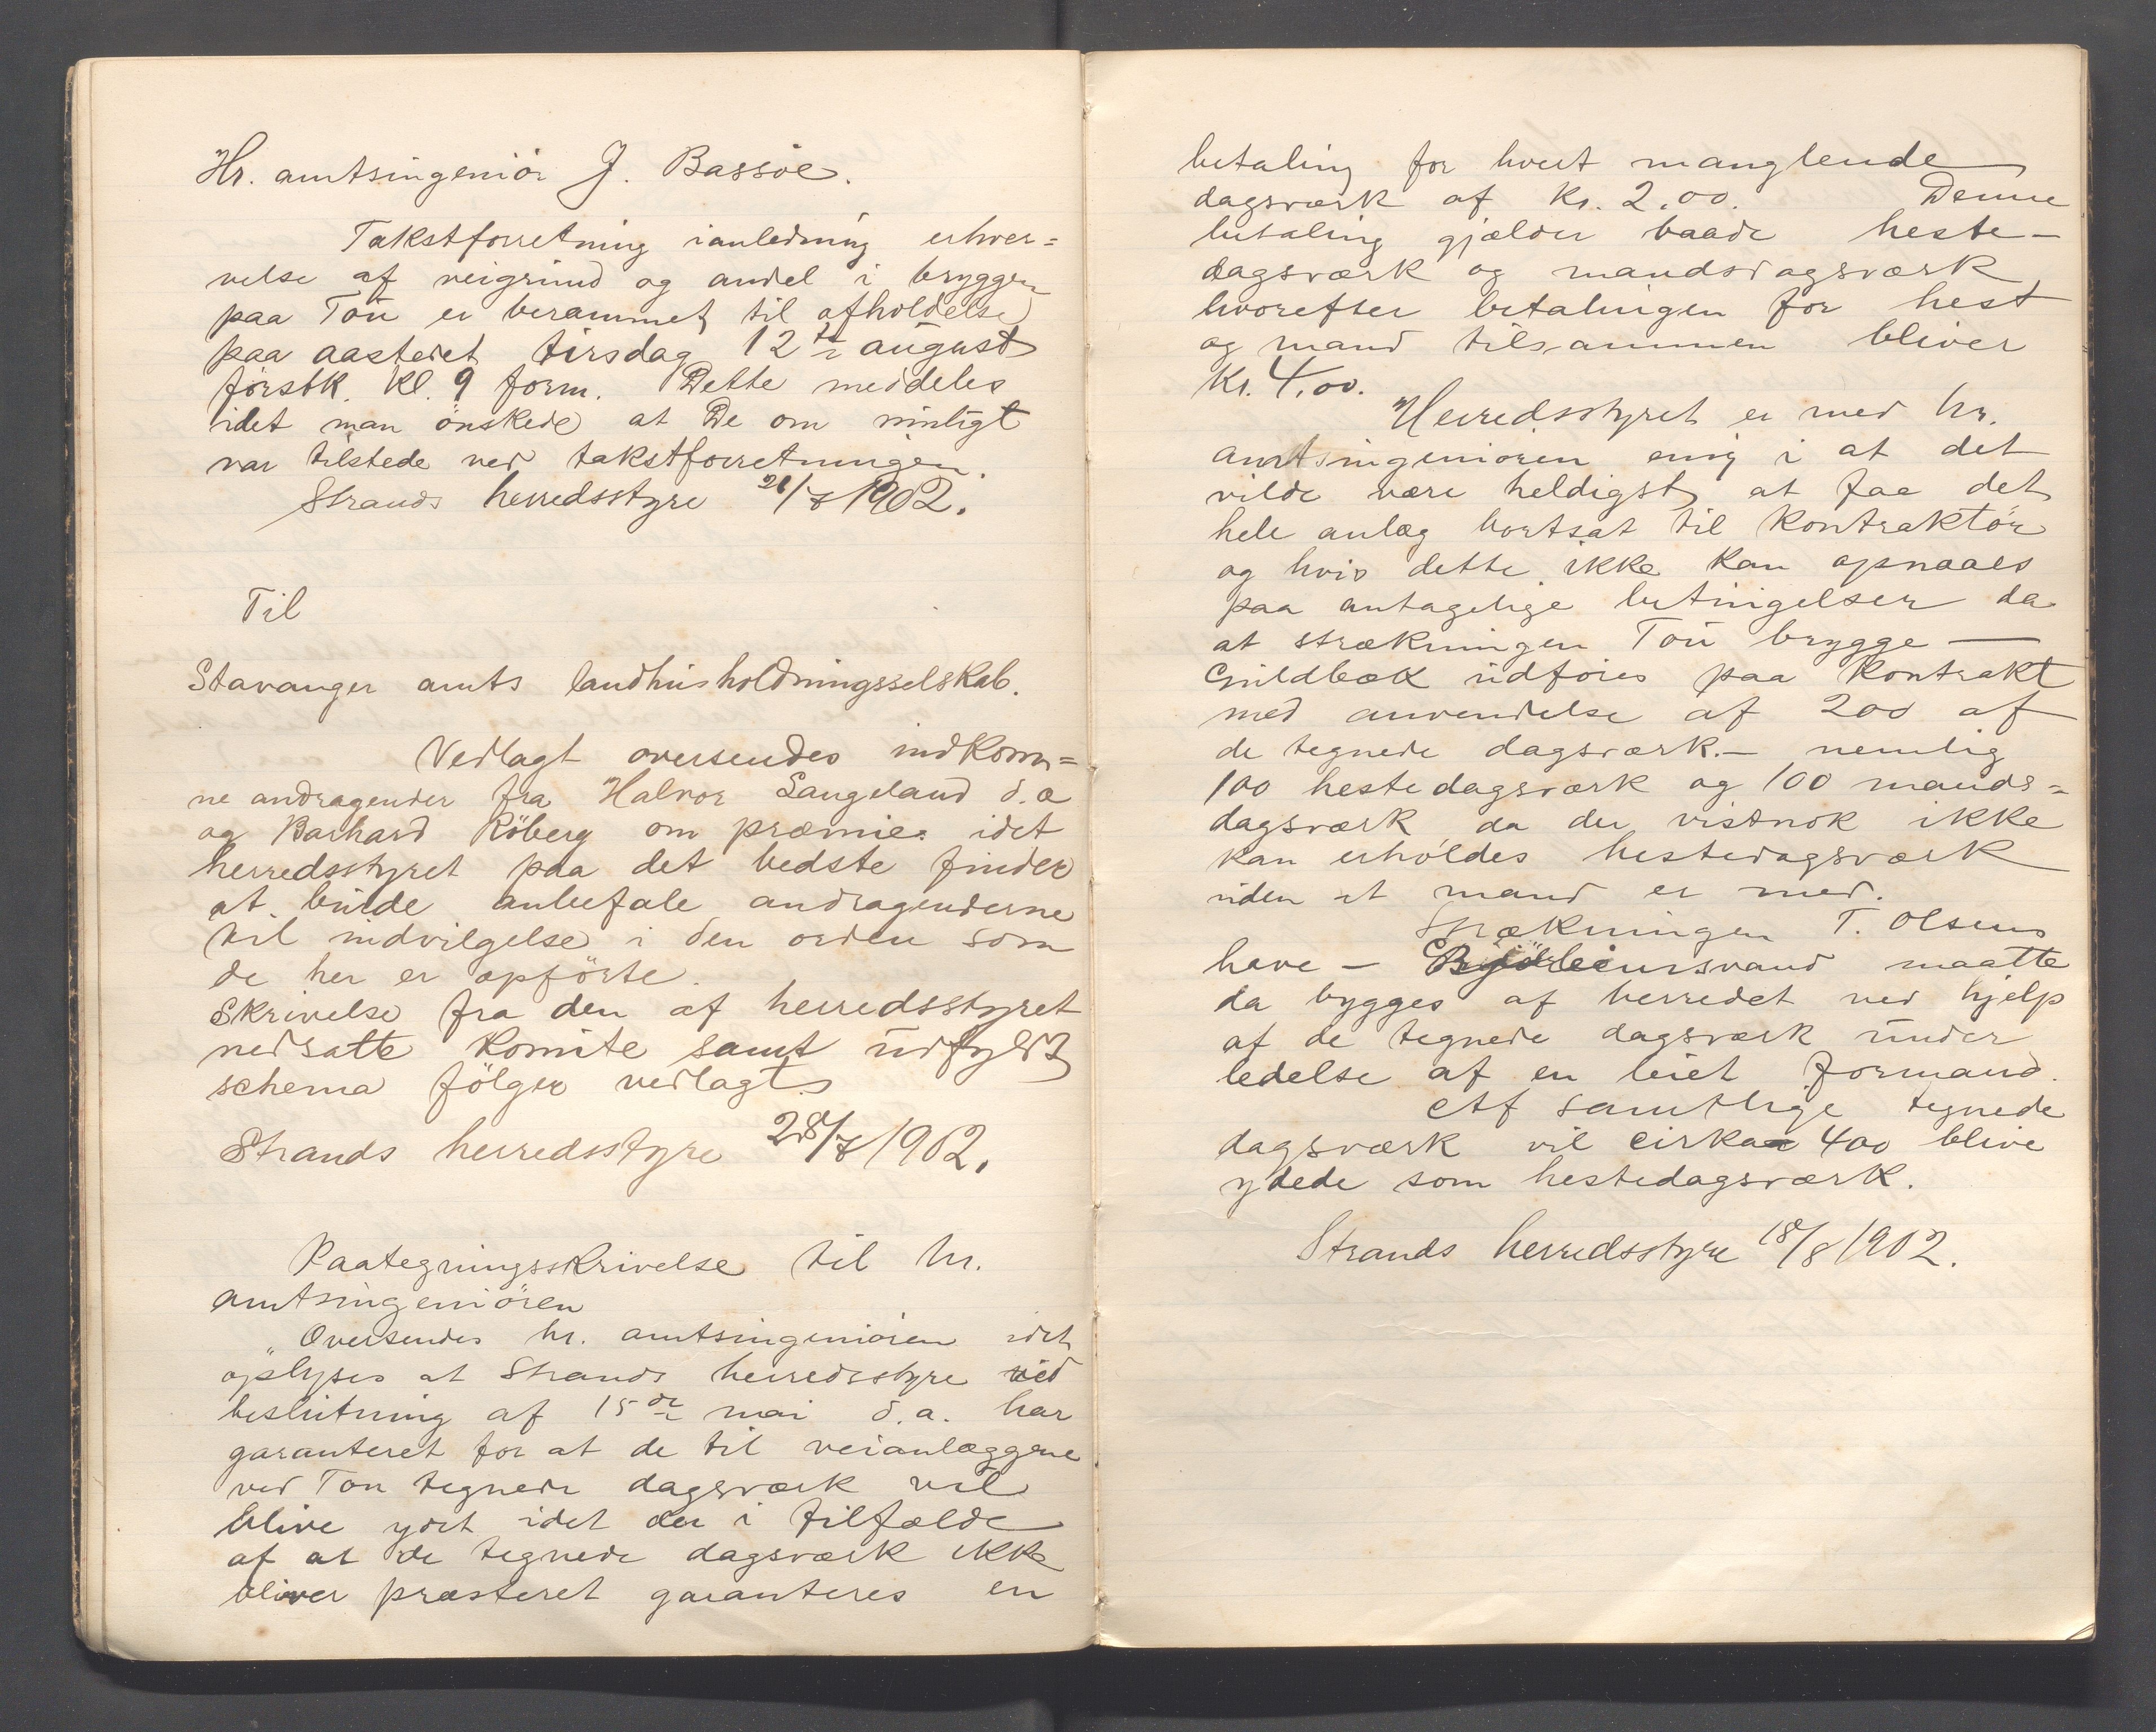 Hr. amtsingeniör J. Bassöe.
Takstforretning ianledning erhver=
velse af veigrund og andel i bryggen
paa Tou er berammet til afholdelse
paa aastedet tirsdag 12te august
förstk. kl. 9 form. Dette meddeles
idet man önskede at De om muligt
var tilstede ved takstforretningen.
Strands herredsstyre 21/7 1902.
Til
Stavanger amts landhusholdningsselskab.
Vedlagt oversendes indkom=
ne andragender fra Halvor Langeland d.æ
og Barhard Röberg om præmie. idet
herredsstyret paa det bedste finder
at burde anbefale andragenderne
til indvilgelse i den orden som
de her er opförte.
Skrivelse fra den af herredsstyret
nedsatte komite samt udfyldt
schema fölger vedlagt.
Strands herredsstyre 28/7 1902.
Paategningsskrivelse til hr.
amtsingeniören
„Oversendes hr. amtsingeniören idet
oplyses at Strands herredsstyre ved
beslutning af 15de mai d.a. har
garanteret for at de til veianlæggene
ved Tou tegnede dagsværk vil
blive ydet idet der i tilfælde
af at de tegnede dagsværk ikke
bliver præsteret garanteres en
betaling for hvert manglende
dagsværk af Kr. 2.00. Denne
betaling gjælder baade heste-
dagsværk og mandsdagsværk
hvorefter betalingen for hest
og mand tilsammen bliver
Kr. 4.00.
Herredsstyret er med hr.
amtsingeniören enig i at det
vilde være heldigst at faa det
hele anlæg bortsat til kontraktör
og hvis dette ikke kan opnaaes
paa antagelige betingelser da
at strækningen Tou brygge —
Guldbæk udföres paa kontrakt
med anvendelse af 200 af
de tegnede dagsværk.- nemlig
100 hestedagsværk og 100 mands=
dagsværk da der vistnok ikke
kan erholdes hestedagsværk
uden at mand er med.
Strækningen T. Olsens
have - maatte
da bygges af herredet ved hjelp
af de tegnede dagsværk under
ledelse af en leiet formand.
Af samtlige tegnede
dagsværk vil cirka 400 blive
ydede som hestedagsværk.
Strands herredsstyre 18/8 1902.